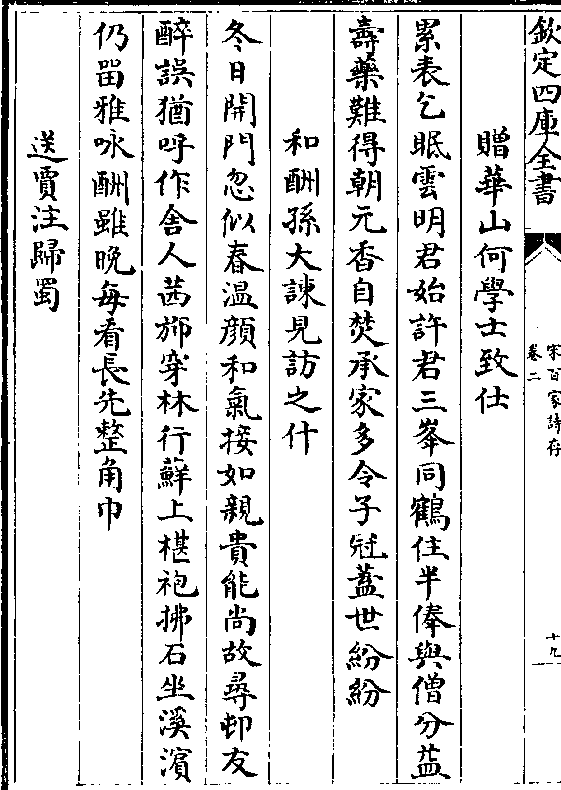 欽定四庫全書
宋百家詩存
卷二
十九
贈華山何學士致仕
累表乞眠雲明君始許君三峯同鶴住半俸與僧分益
壽藥難得朝元香自焚承家多令子冠葢世紛紛
和酬孫大諫見訪之什
冬日開門忽似春温顔和氣接如親貴能尚故尋邨友
醉誤猶呼作舍人茜斾穿林行蘚上椹袍拂石坐溪濵
仍畱雅咏酬雖晩每看長先整角巾
送賈注歸蜀